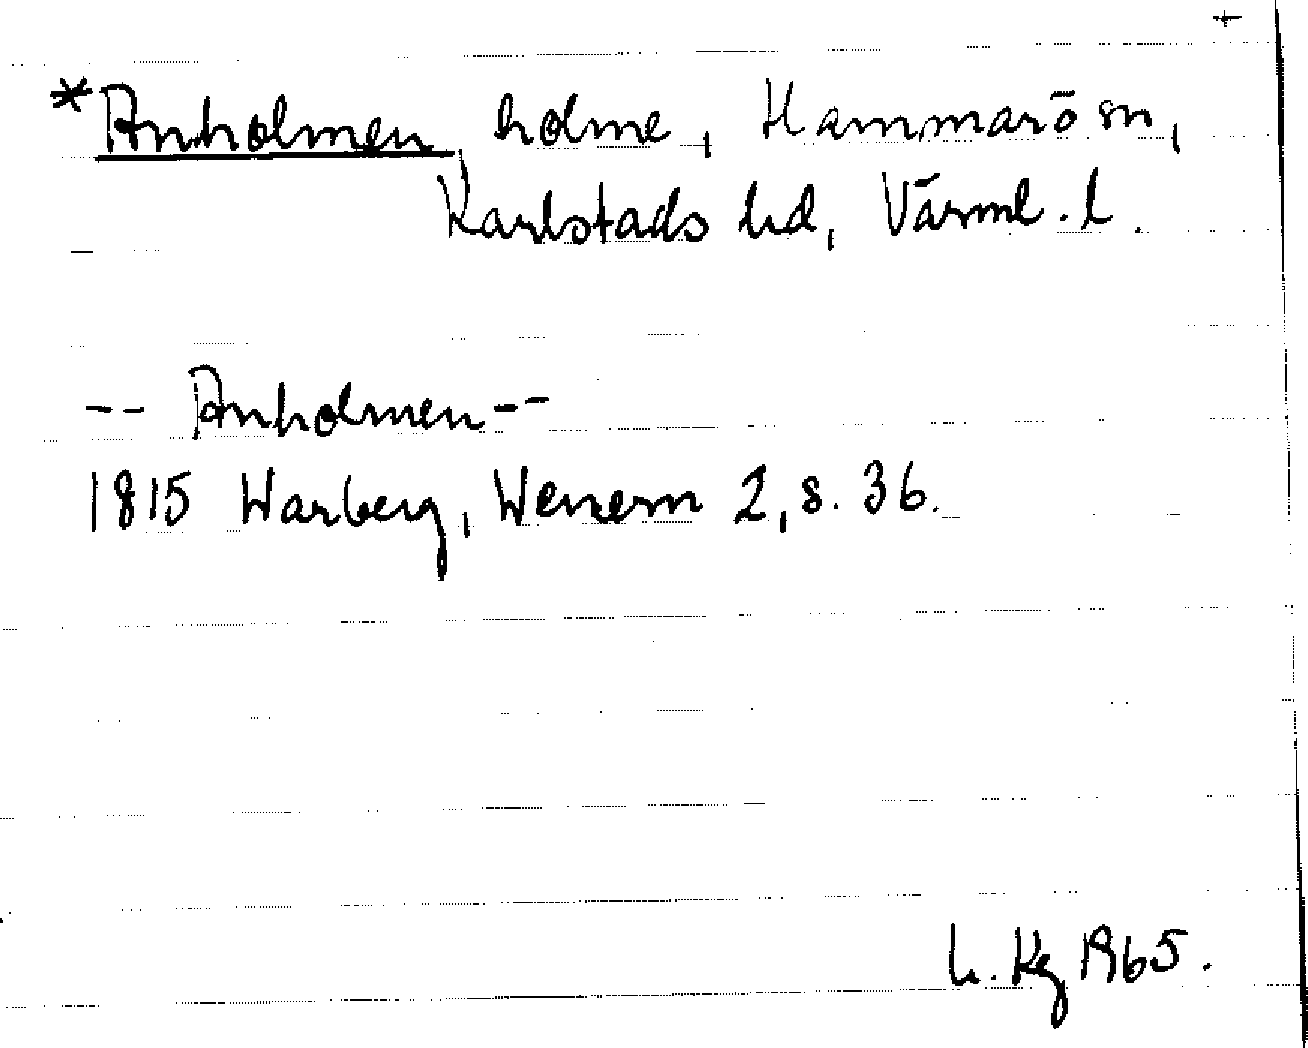 +
*Anholmen, holme, Hammarö sn,
Karlstads hd, Värml. l.
-- Anholmen --
1815 Warberg, Wenern 2, s. 36.
L. Kg 1965.